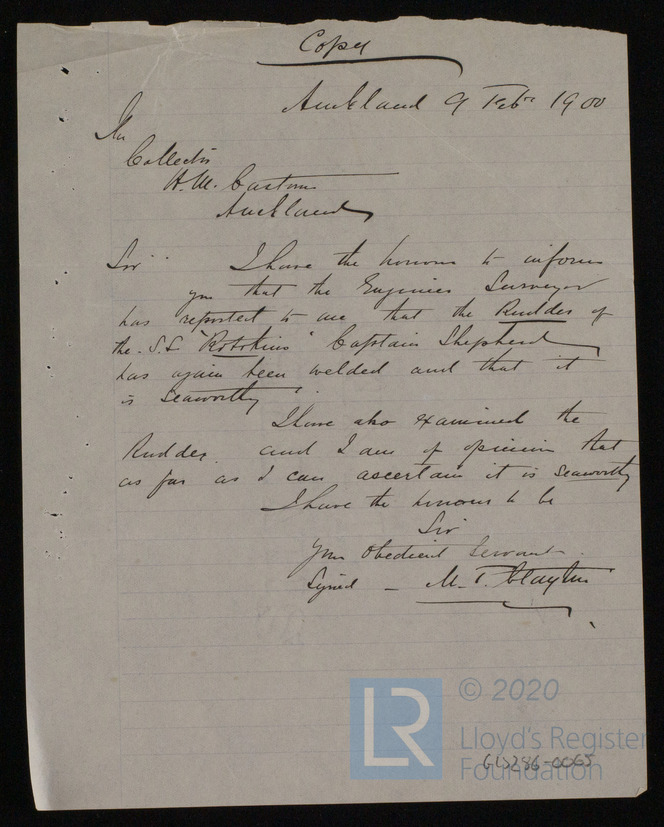 Copy
Auckland 9 Feby 1900
The
Collector
H.M. Customs
Auckland
Sir I have the honour to inform
you that the Engineer Surveyor
has reported to me that the Rudder of
the S.S "Rotokino" Captain Shepherd
has again been welded and that it
is seaworthy
I have also examined the
Rudder and I am of opinion that
as far as I can ascertain it is seaworthy
I have the honour to be
Sir
Your Obedient Servant
Signed - M. T. Clayton
© 2020
LR
Lloyd's Register
Foundation
GLS286-0065